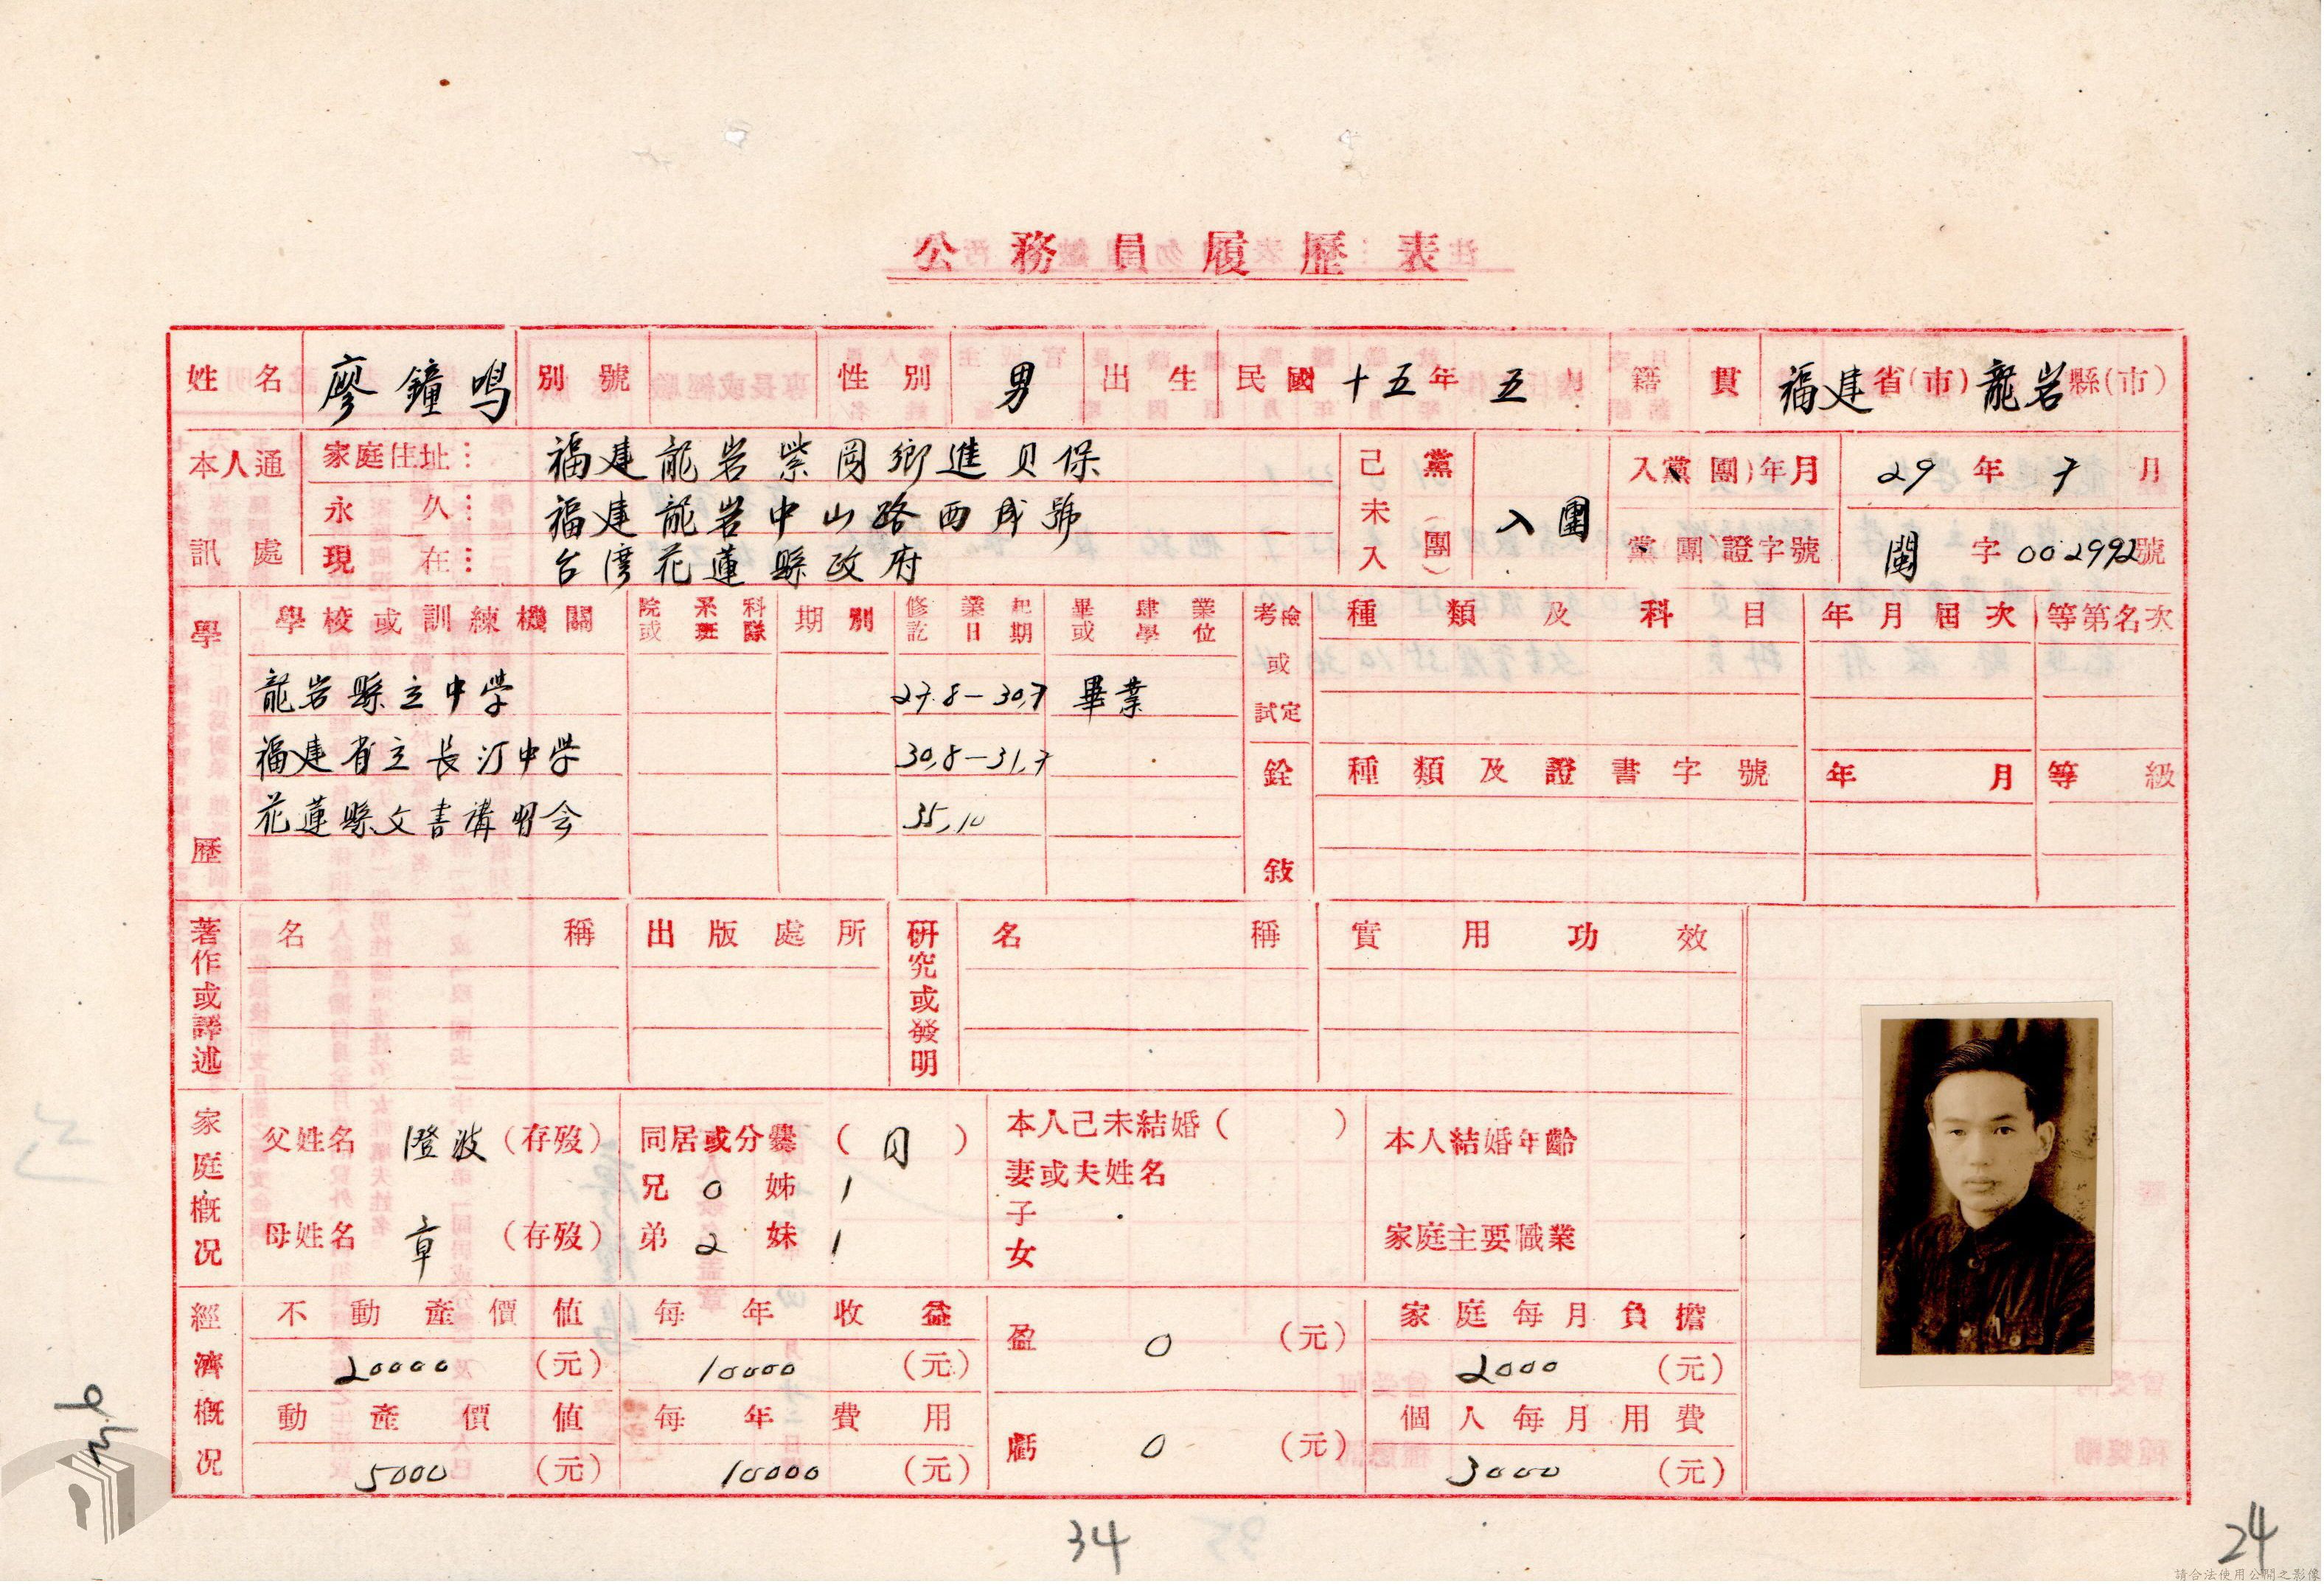 公務員履歷表
姓名 廖鐘鳴 別號 性別 男 出生 民國十五年五月 籍貫 福建省(市)龍岩縣(市)
本人通訊處
家庭住址： 福建龍岩紫岡鄉進貝保
永久： 福建龍岩中山路西成號
現在： 台灣花蓮縣政府
己未入黨(團) 入團
入黨(團)年月 29年7月
黨(團)證字號 閩字002992號
學歷
學校或訓練機關 院系科或班隊 期別 修業起訖日期 畢肄業或學位
龍岩縣立中学 27.8-30.7 畢業
福建省立長汀中学 30.8-31.7
花蓮縣文書講習会 35.10
考試或檢定 種類及科目 年月屆次 等第名次
銓敍 種類及證書字號 年月 等級
著作或譯述 名稱 出版處所
研究或發明 名稱 實用功效
家庭概況
父姓名 澄波 (存歿)
母姓名 章 (存歿)
同居或分爨(同)
兄 0 姊 1
弟 2 妹 1
本人己未結婚( )
妻或夫姓名
子
女
本人結婚年齡
家庭主要職業
經濟概況
不動產價值 每年收益 盈 0 (元) 家庭每月負擔
20000 (元) 10000 (元) 2000 (元)
動產價值 每年費用 虧 0 (元) 個人每月用費
5000 (元) 10000 (元) 3000 (元)
34
24
請合法使用公開之影像